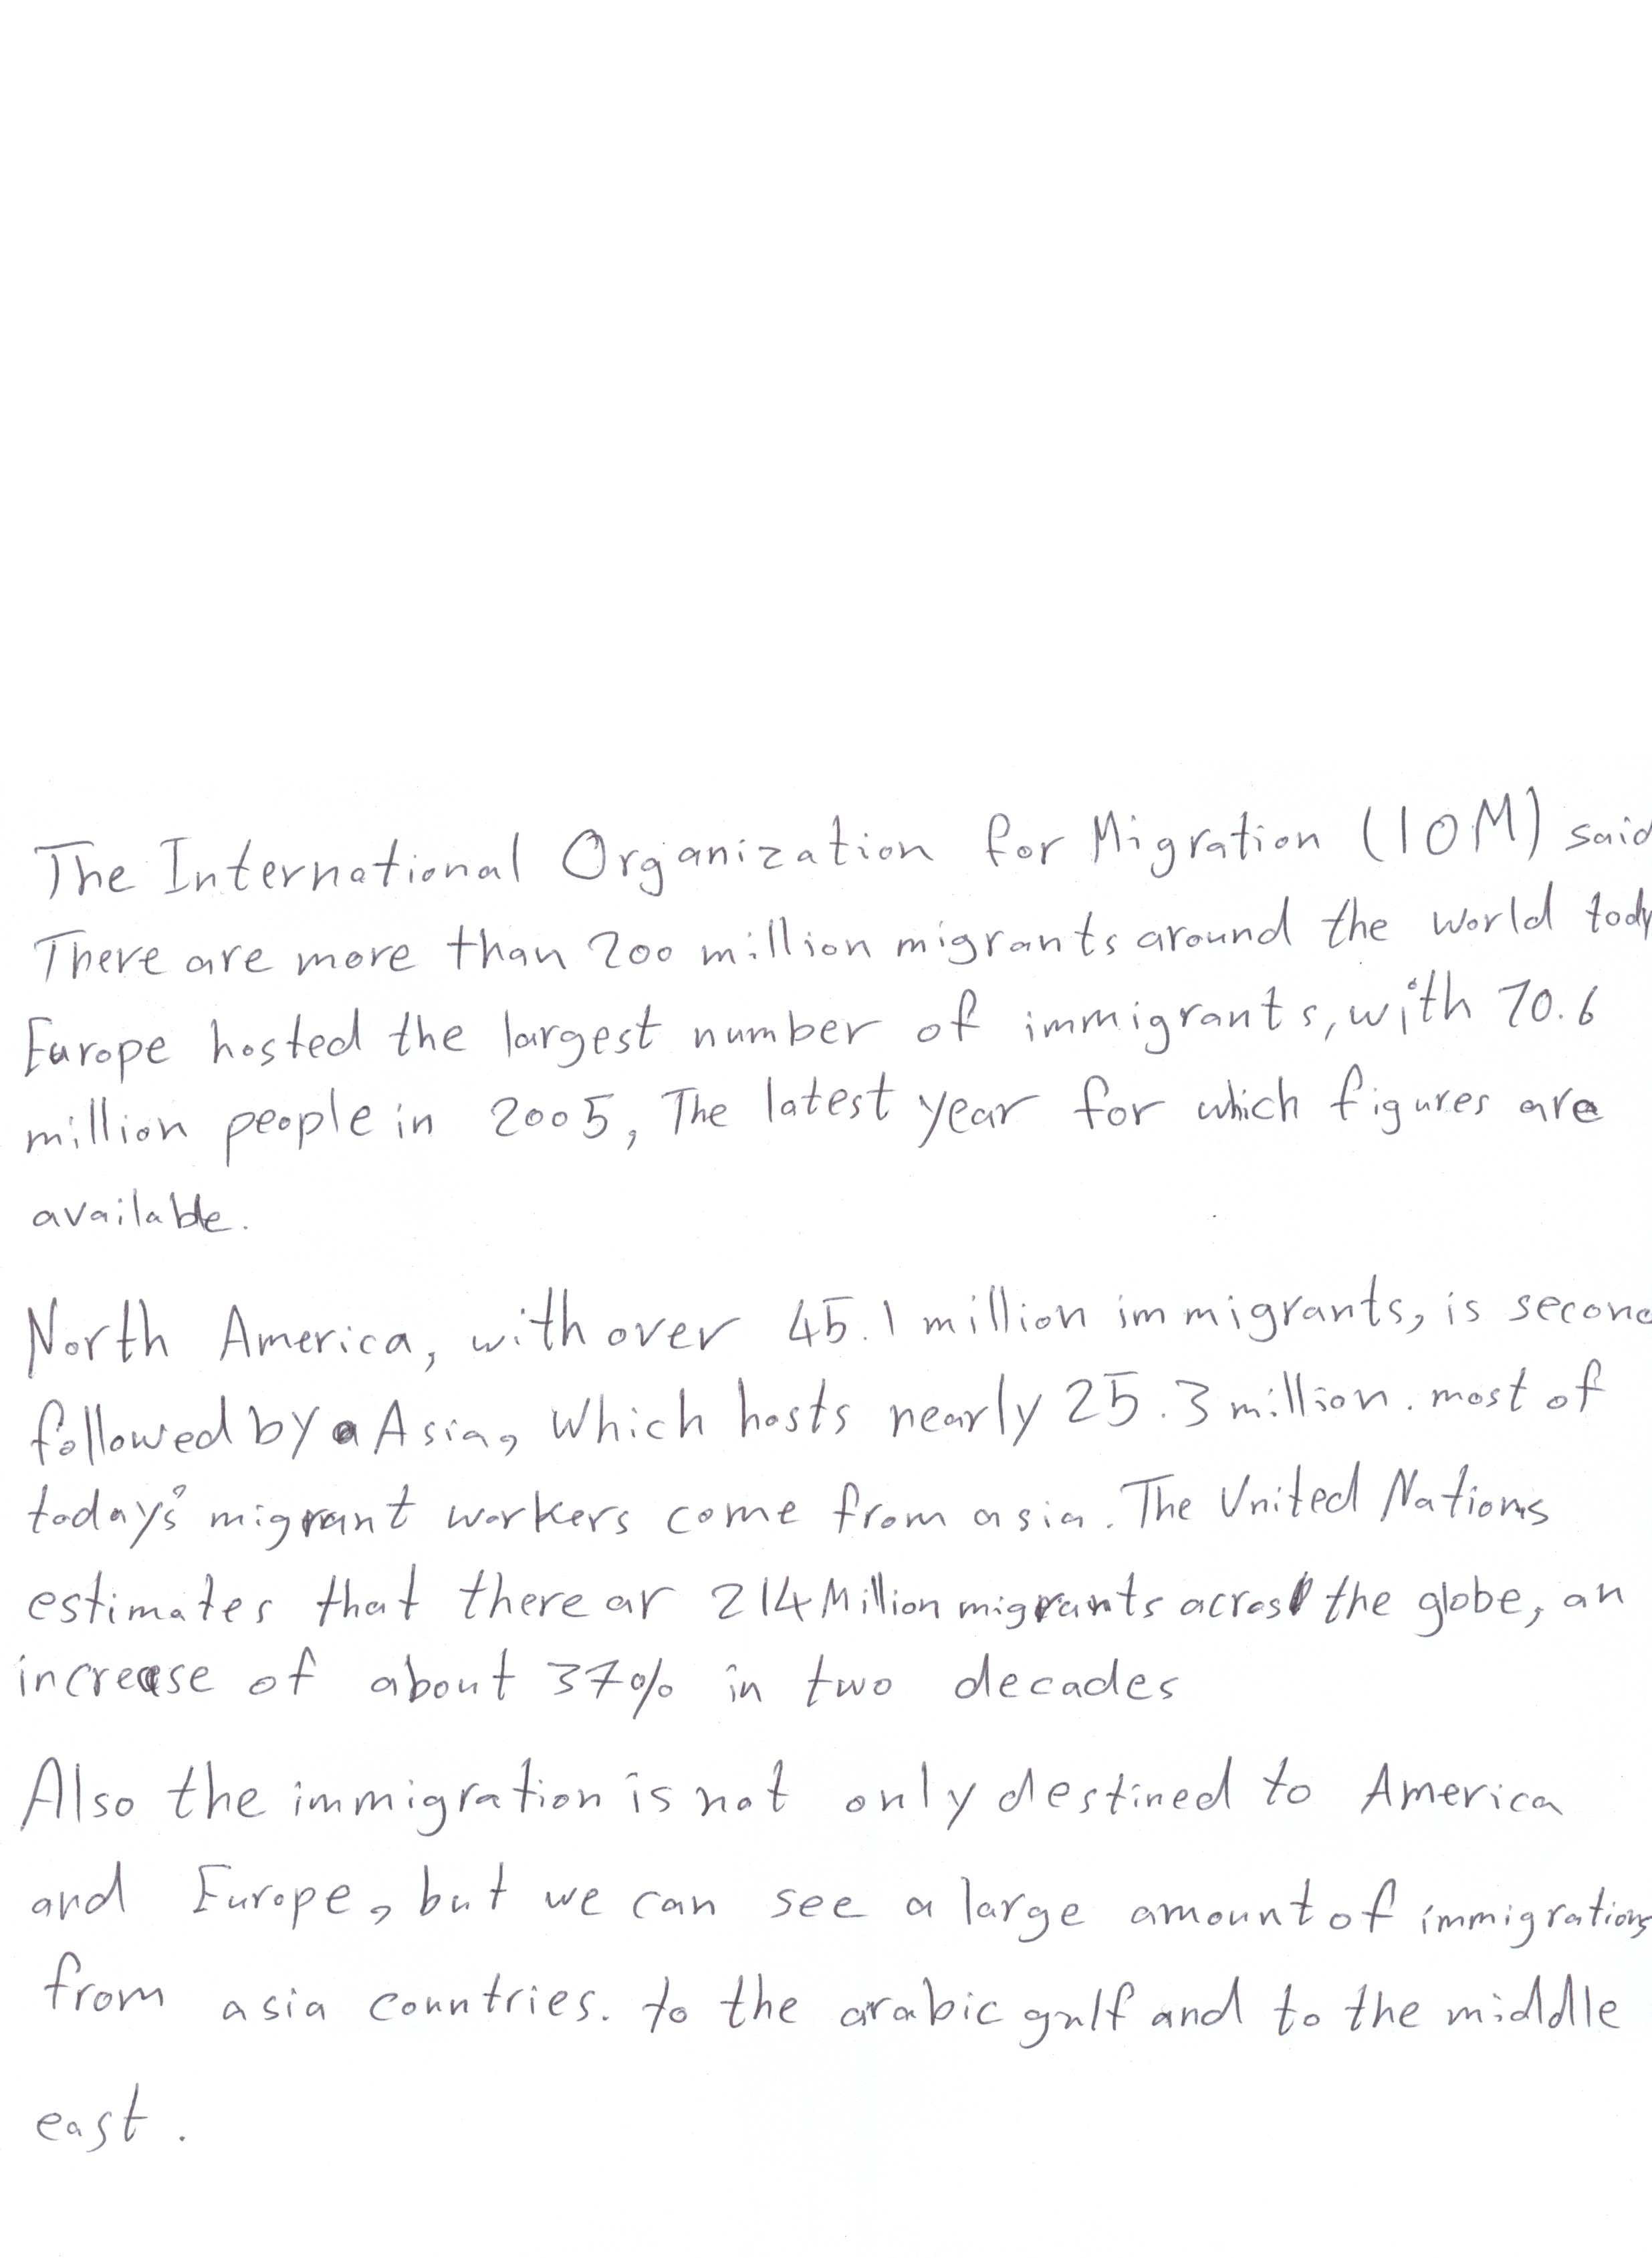 The International Organization for Migration (IOM) said
There are more than 200 million migrants around the world tody
Europe hosted the largest number of immigrants, with 70.6
million people in 2005, The latest year for which figures are
available.
North America, with over 45.1 million immigrants, is second
followed by Asia, Which hosts nearly 25.3 million. most of
today's migrant workers come from asia. The United Nations
estimates that there ar 214 Million migrants across the globe, an
increase of about 37% in two decades
Also the immigration is not only destined to America
and Europe, but we can see a large amount of immigrations
from asia countries. to the arabic gulf and to the middle
east.